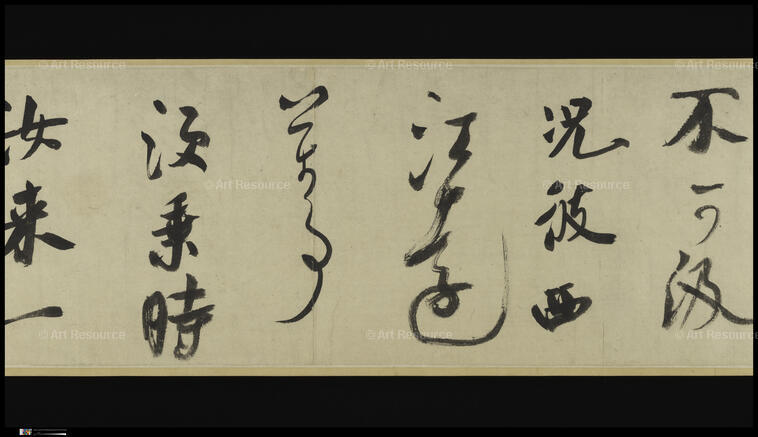 不可汲
况彼西
江遠
萬事
須乘時
汝来一
© Art Resource
© Art Resource
© Art Resource
© Art Resource
© Art Resource
© Art Resource
© Art Resource
© Art Resource